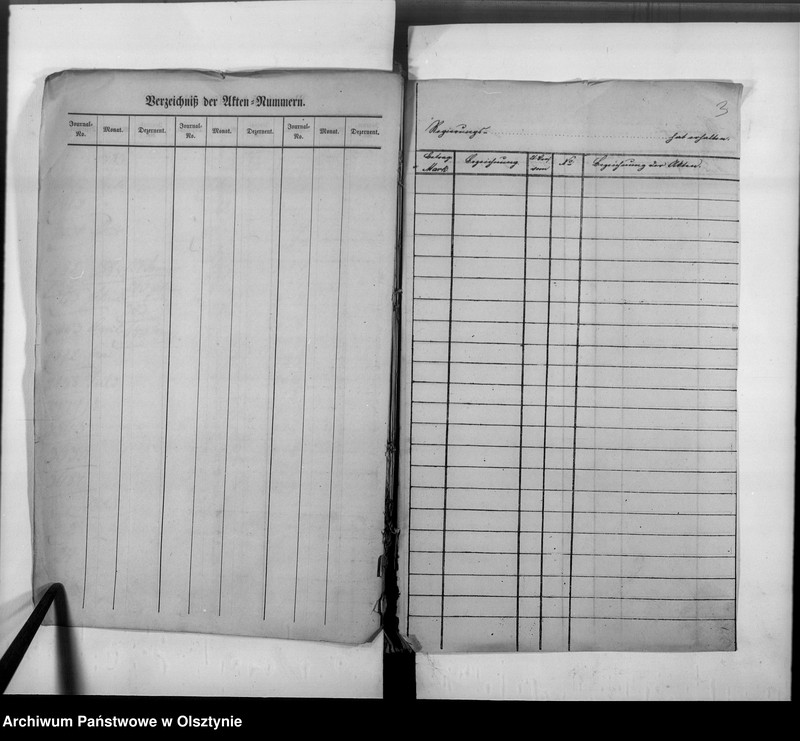 Verzeichniß der Akten-Nummern.
Journal-No. Monat. Dezernent. Journal-No. Monat. Dezernent. Journal-No. Monat. Dezernent.
3
Regierungs- hat erhalten.
Betrag Mark Bezeichnung vom No Bezeichnung der Akten.
Archiwum Państwowe w Olsztynie